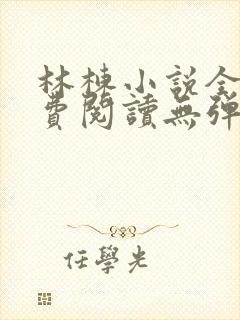 林棟小說全
費閱讀無彈
任學光